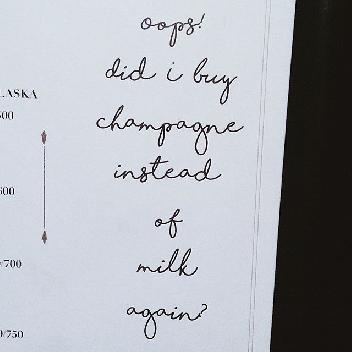 oops!
did i buy
LASKA
champagne
500
instead
600
of
/700
milk
again?
0/750